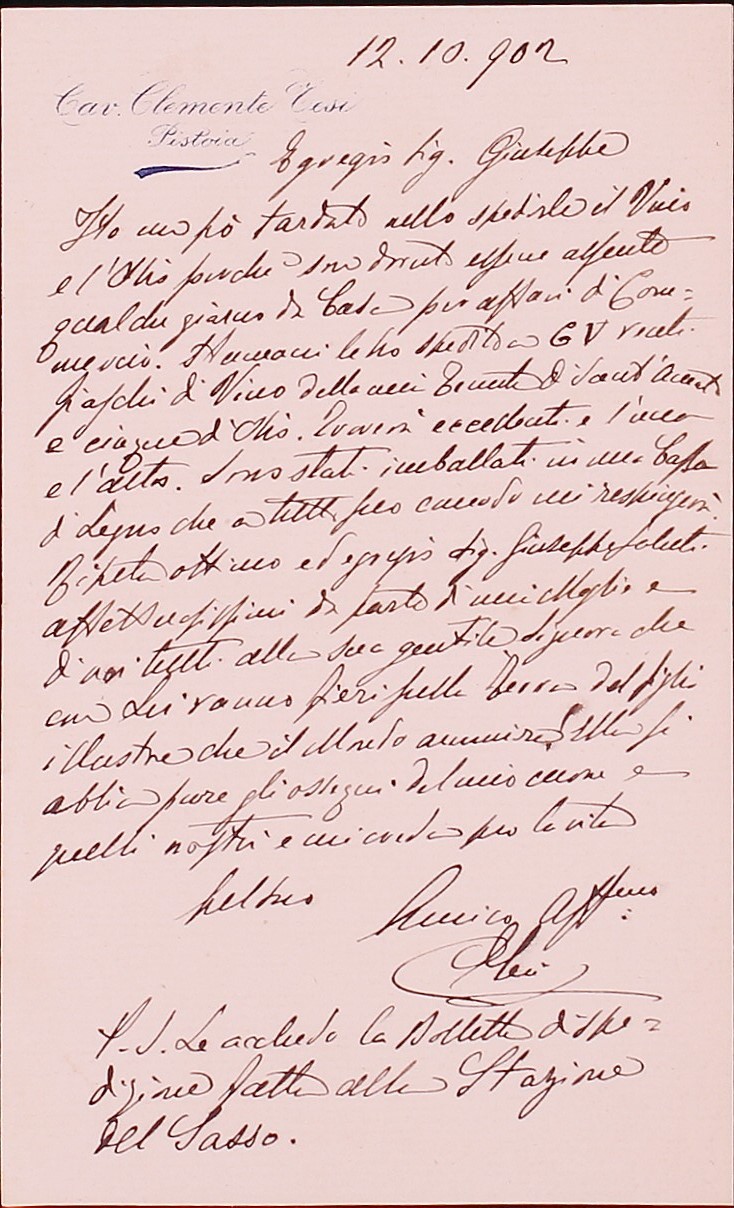 12.10.902
Cav. Clemente Tesi
Pistoia
Egregio Sig. Giuseppe
Ho un pò tardato nello spedirle il Vino
e l'Olio perchè son dovuto essere assente
qualche giorno da Casa per affari di Com=
mercio. Stamani le ho spedito a G V venti
fiaschi di Vino della mia Tenuta di Sant'
e cinque d'Olio. Troverà eccellenti e l'uno
e l'altro. Sono stati imballati in una Cassa
di Legno che a tutto suo comodo mi respingerà.
ottimo ed egregio Sig. Giuseppe saluti
affettuosissimi da parte di mia Moglie e
di noi tutti alla sua gentile Signora che
con Lei vanno fieri della Terra del figlio
illustre che il Mondo ammira. Ella si
abbia pure gli ossequi del mio cuore e
quelli nostri e mi creda per la vita
pel Suo
Amico Aff.mo
P.S. Le accludo la Bolletta di spe=
dizione fatta alla Stazione
del Sasso.